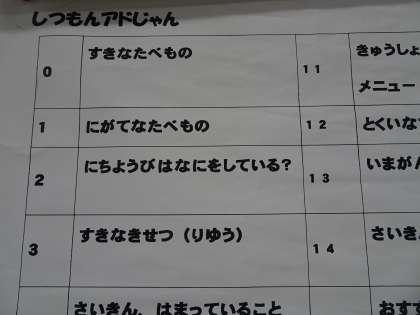 しつもんアドじゃん
0 すきなたべもの 11 きゅうしょ
メニュー
1 にがてなたべもの 12 とくいな
2 にちようびはなにをしている? 13 いまが
3 すきなきせつ(りゆう) 14 さいき
さいきん、はまっていること おす